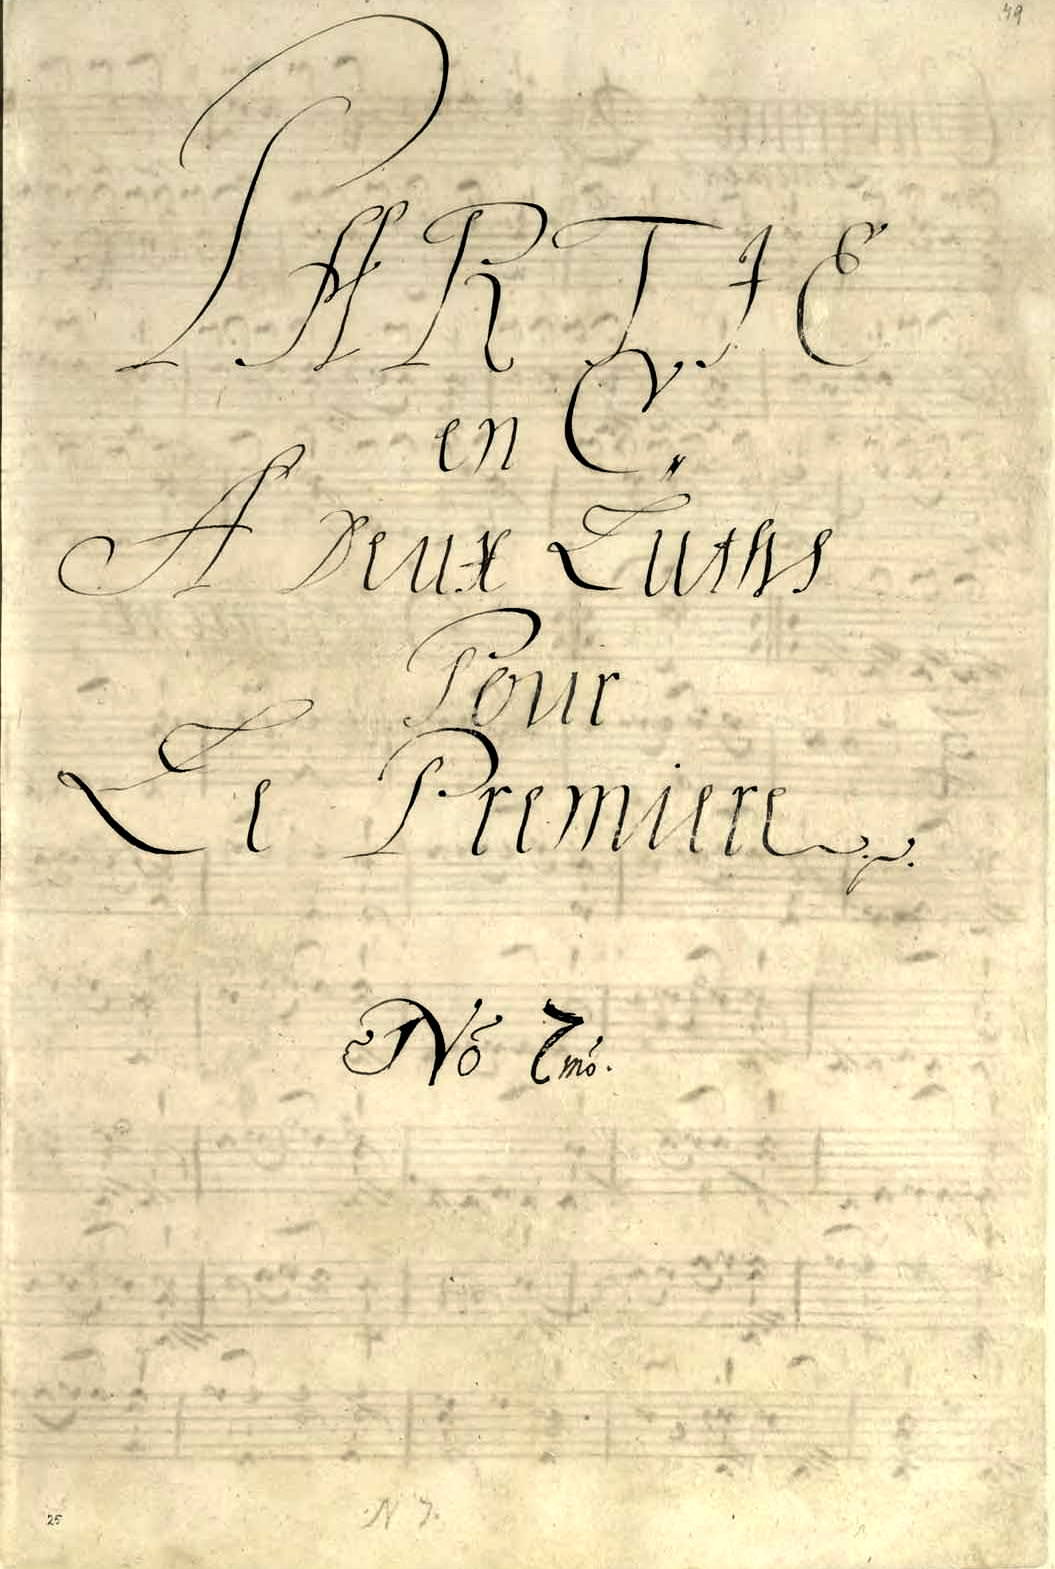 49
PARTIE
en C.
A Deux Luths
Pour
Le Premiere
No 7mo.
25
N 7.